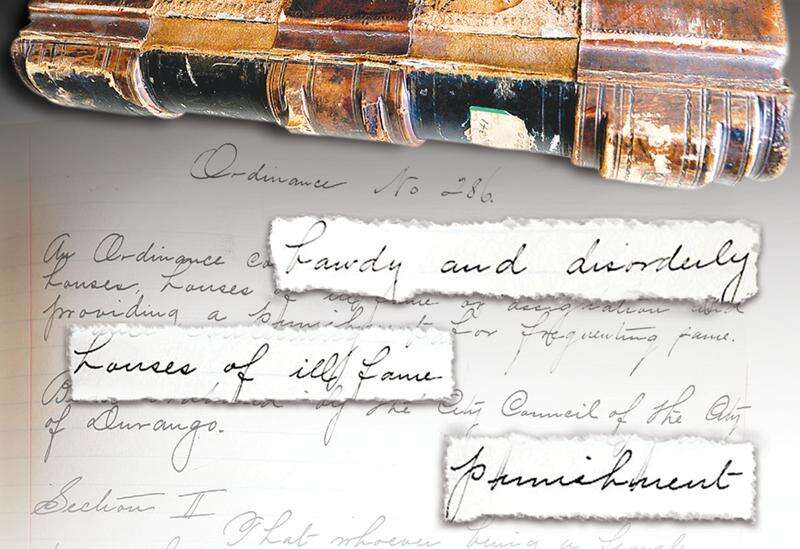 Ordinance No 286.
An Ordinance co
bawdy and disorderly
houses, houses of ill fame or assignation and
providing a punishment for frequenting same.
houses of ill fame
by the City Council of the City
of Durango.
punishment
Section II
That whoever being a